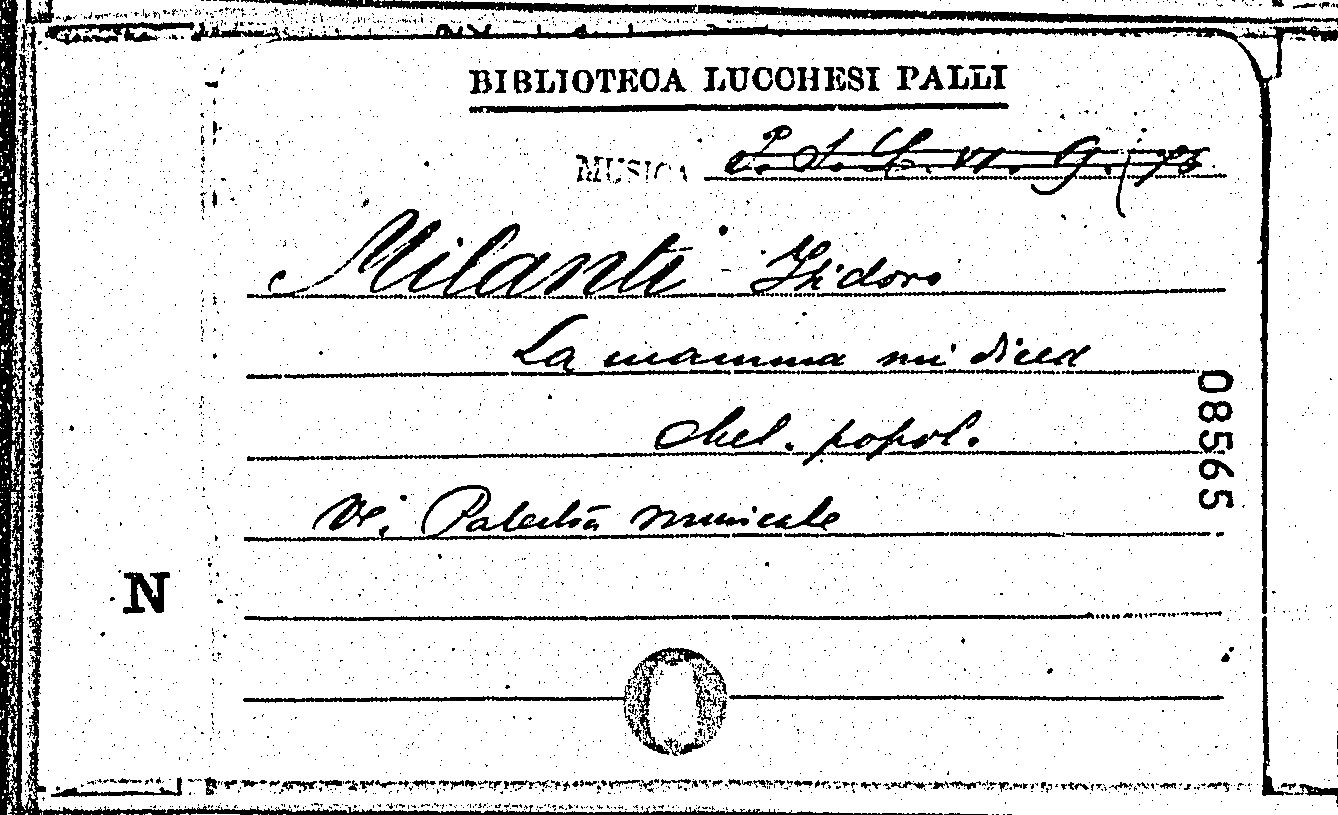 BIBLIOTECA LUCCHESI PALLI
MUSICA
Milanti Isidoro
La mamma mi dicea
Mel. popol.
Ve. Palestra musicale
08565
N